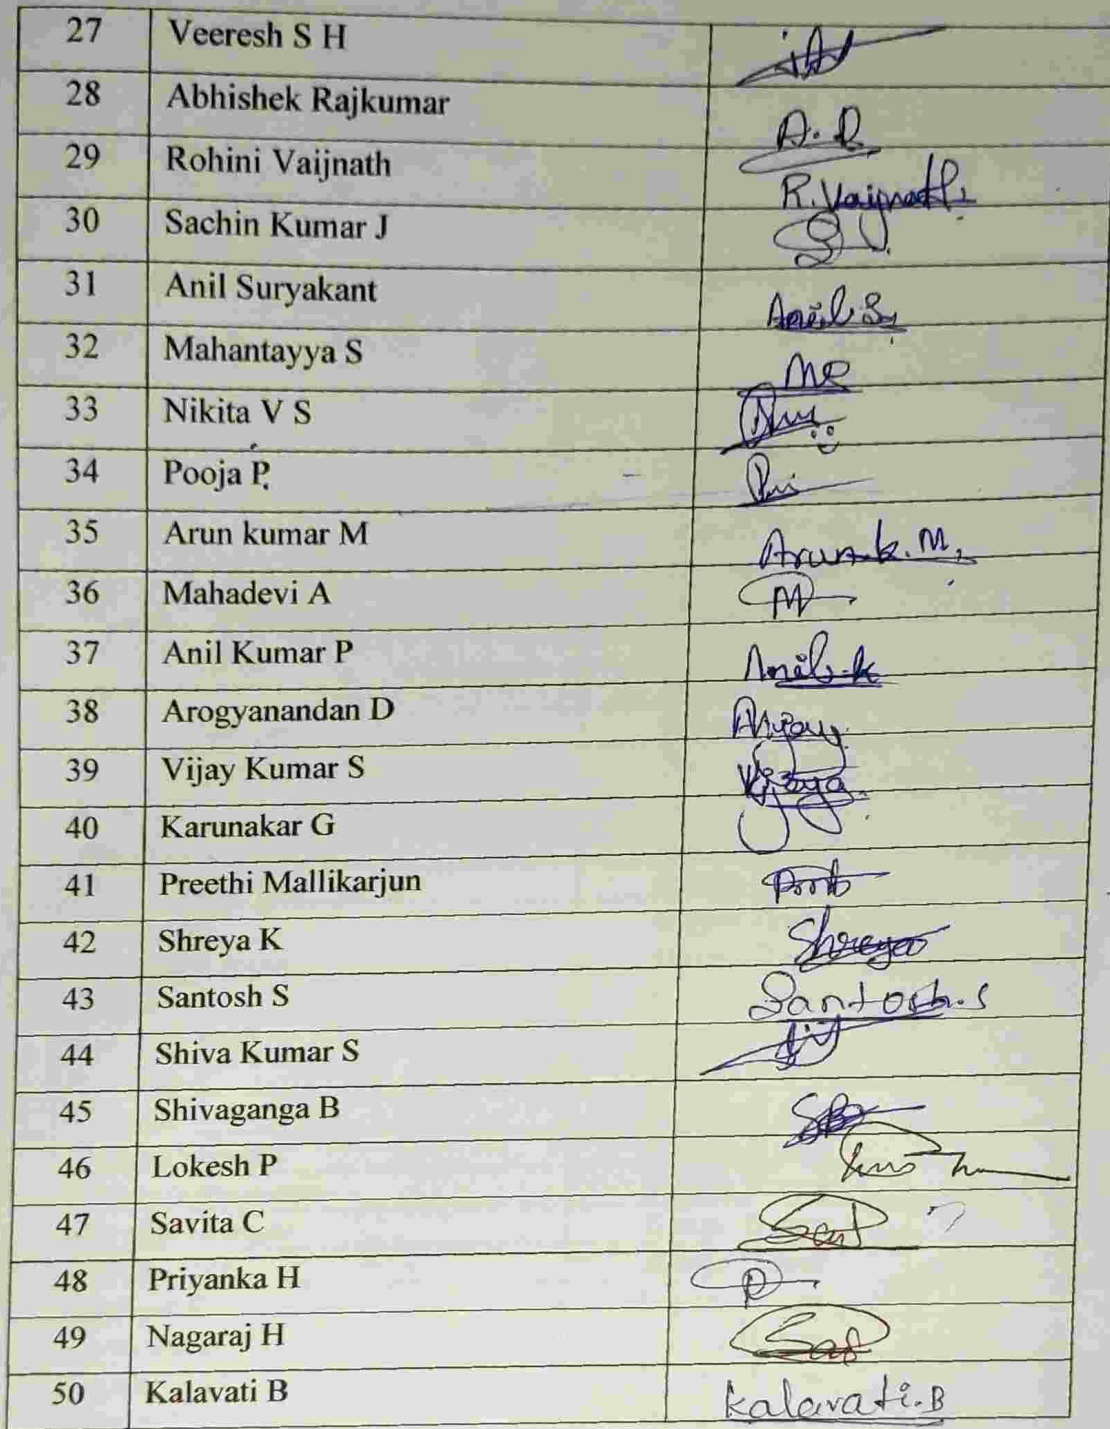 27 Veeresh S H
28 Abhishek Rajkumar A.R
29 Rohini Vaijnath R.Vaijnath
30 Sachin Kumar J
31 Anil Suryakant Anil.S
32 Mahantayya S
33 Nikita V S
34 Pooja P.
35 Arun kumar M Arun.k.M.
36 Mahadevi A
37 Anil Kumar P Anil.k
38 Arogyanandan D
39 Vijay Kumar S
40 Karunakar G
41 Preethi Mallikarjun
42 Shreya K Shreya
43 Santosh S Santosh.S
44 Shiva Kumar S
45 Shivaganga B
46 Lokesh P
47 Savita C
48 Priyanka H
49 Nagaraj H
50 Kalavati B Kalavati.B